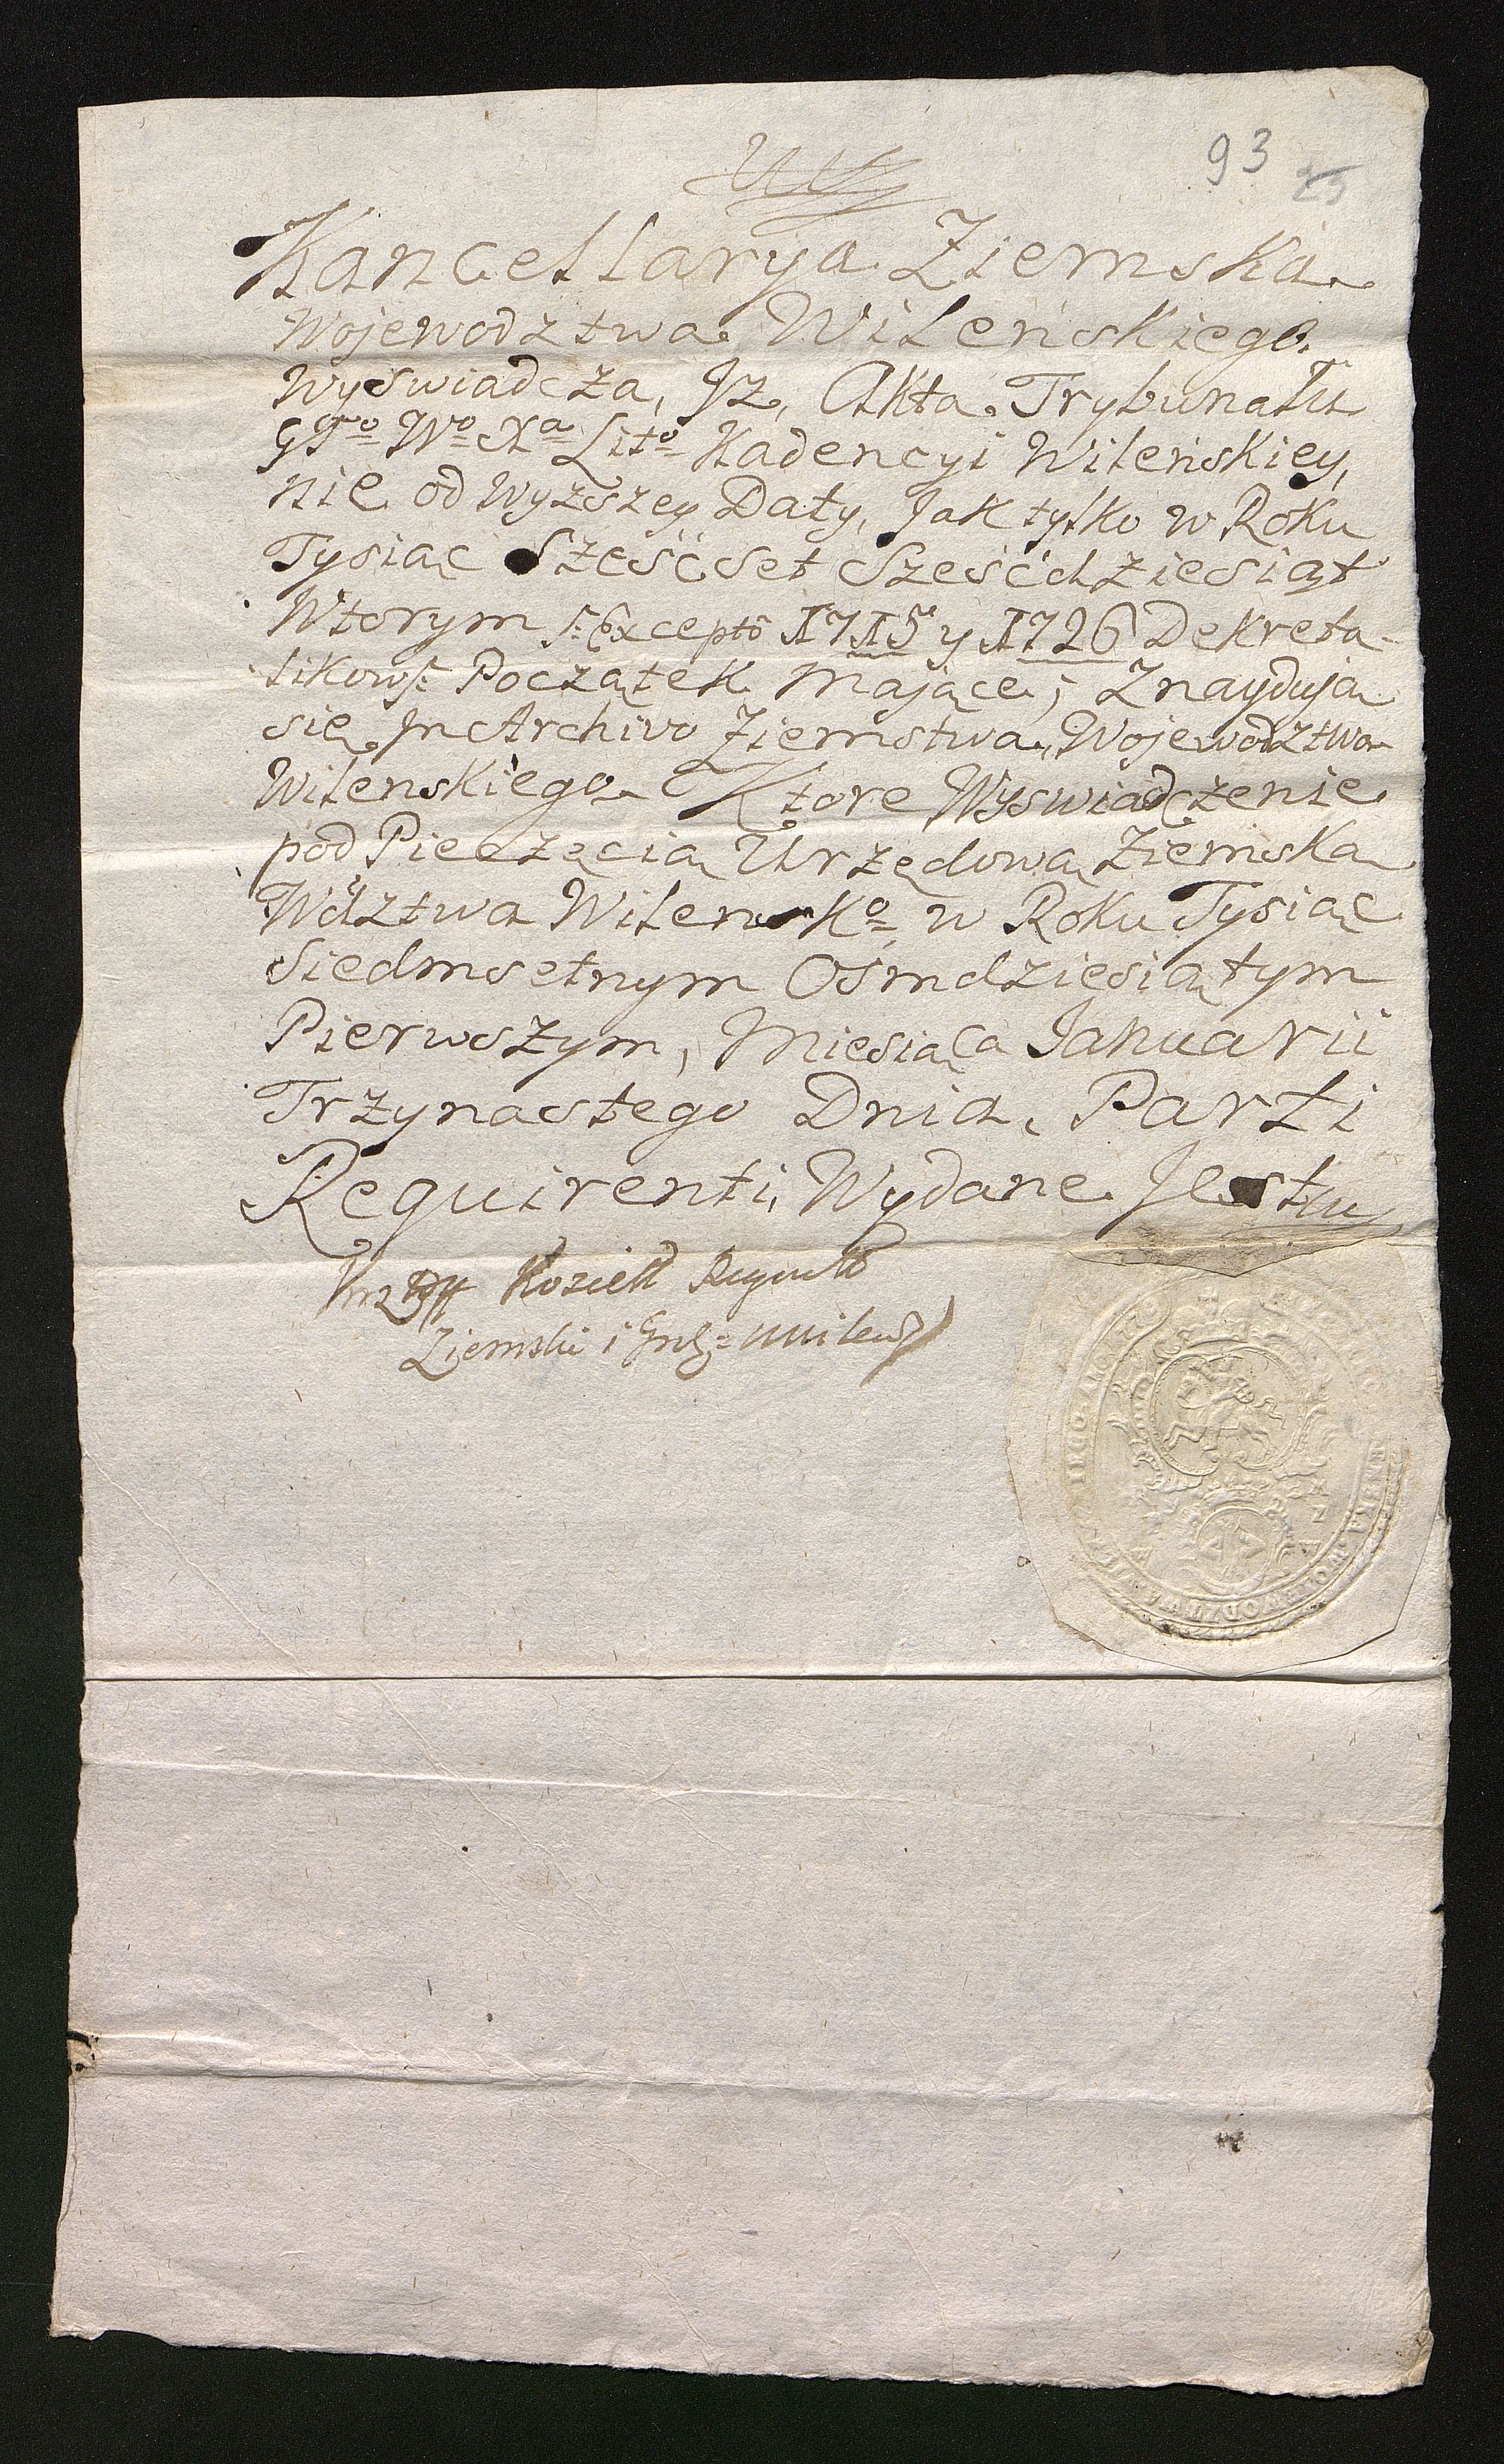 93 25
Kancellarya Ziemska
Wojewodztwa Wileńskiego
Wyswiadcza, Jz, Akta Trybunału
Głło Wo Xa Lito Kadencyi Wileńskiey,
nie od Wyższey Daty, Jak tylko w Roku
Tysiąc Sześćset Sześćdziesiąt
Wtorym /: Excepto 1715 y 1726 Dekreta-
likow :/ Początek Mające, Znaydują
się Jn Archivo Ziemstwa Wojewodztwa
Wilenskiego Ktore Wyswiadczenie
pod Pieczęcią Urzędową Ziemską
Wdztwa Wilensko w Roku Tysiąc
Siedmsetnym Osmdziesiątym
Pierwszym, Miesiąca Januarii
Trzynastego Dnia, Parti
Requirenti, Wydane Jest
Koziełł Regent
Ziemski i